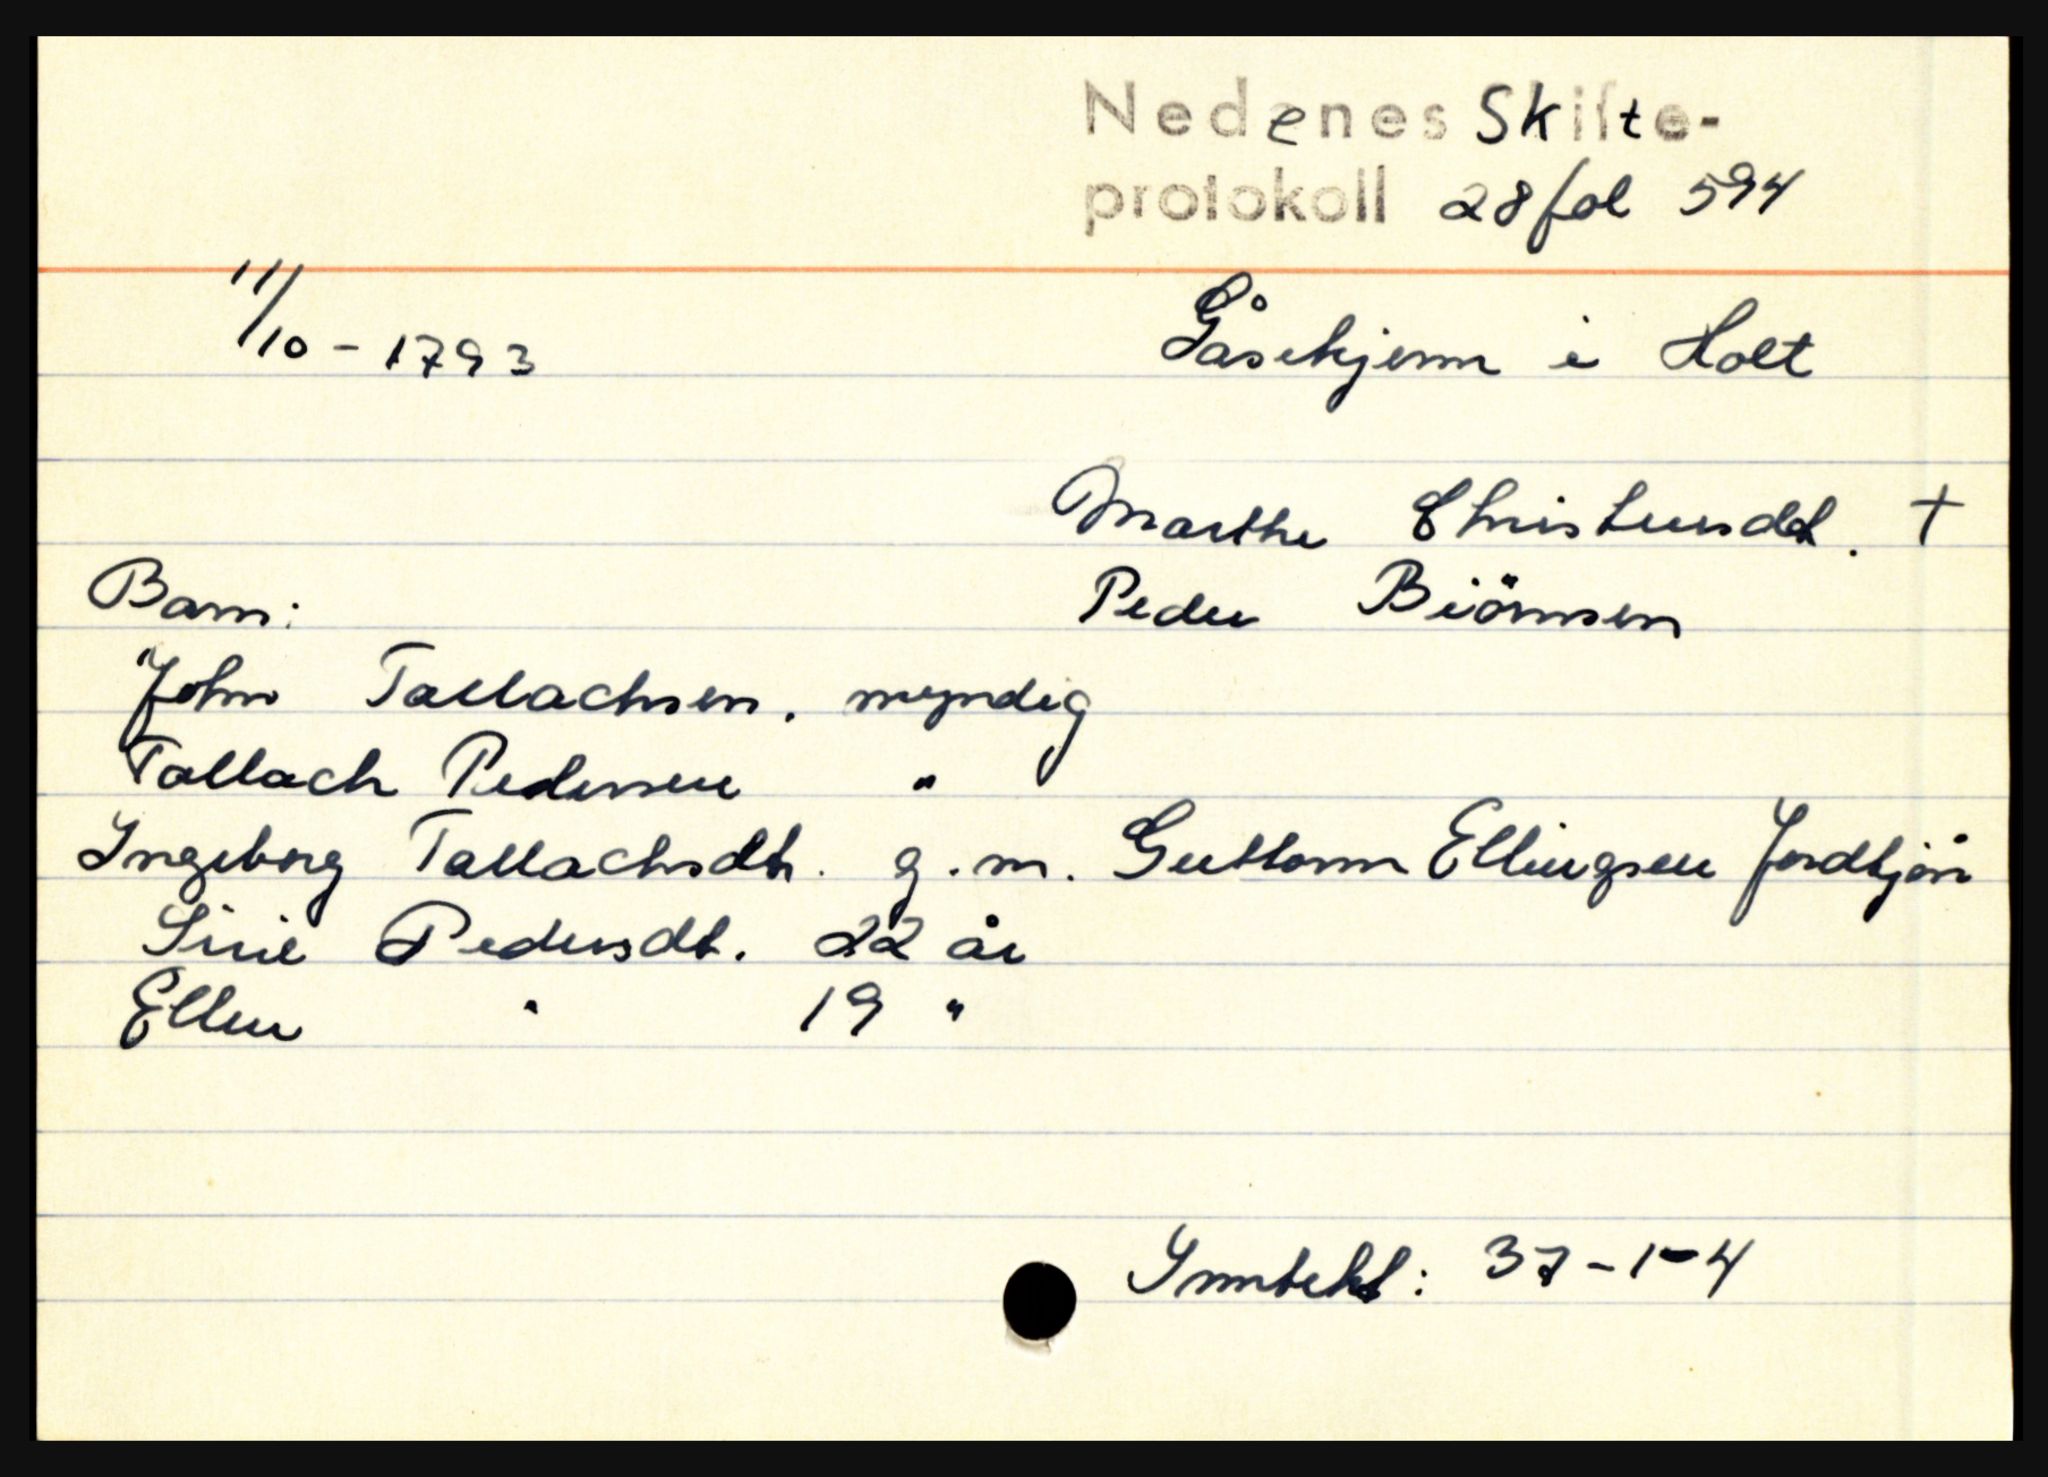 Nedenes Skifte-
protokoll 28 fol 594
11/10 - 1793 Gåsekjenn i Holt
Marthe Christensdt. +
Barn: Peder Biörnsen
John Tallachsen. myndig
Tallach Pedersen "
Ingeborg Tallachsdtr. g.m. Guttorm Ellingsen Jordkjön
Sirie Pedersdt. 22 år
Ellen " 19 "
Inntekt: 37-1-4